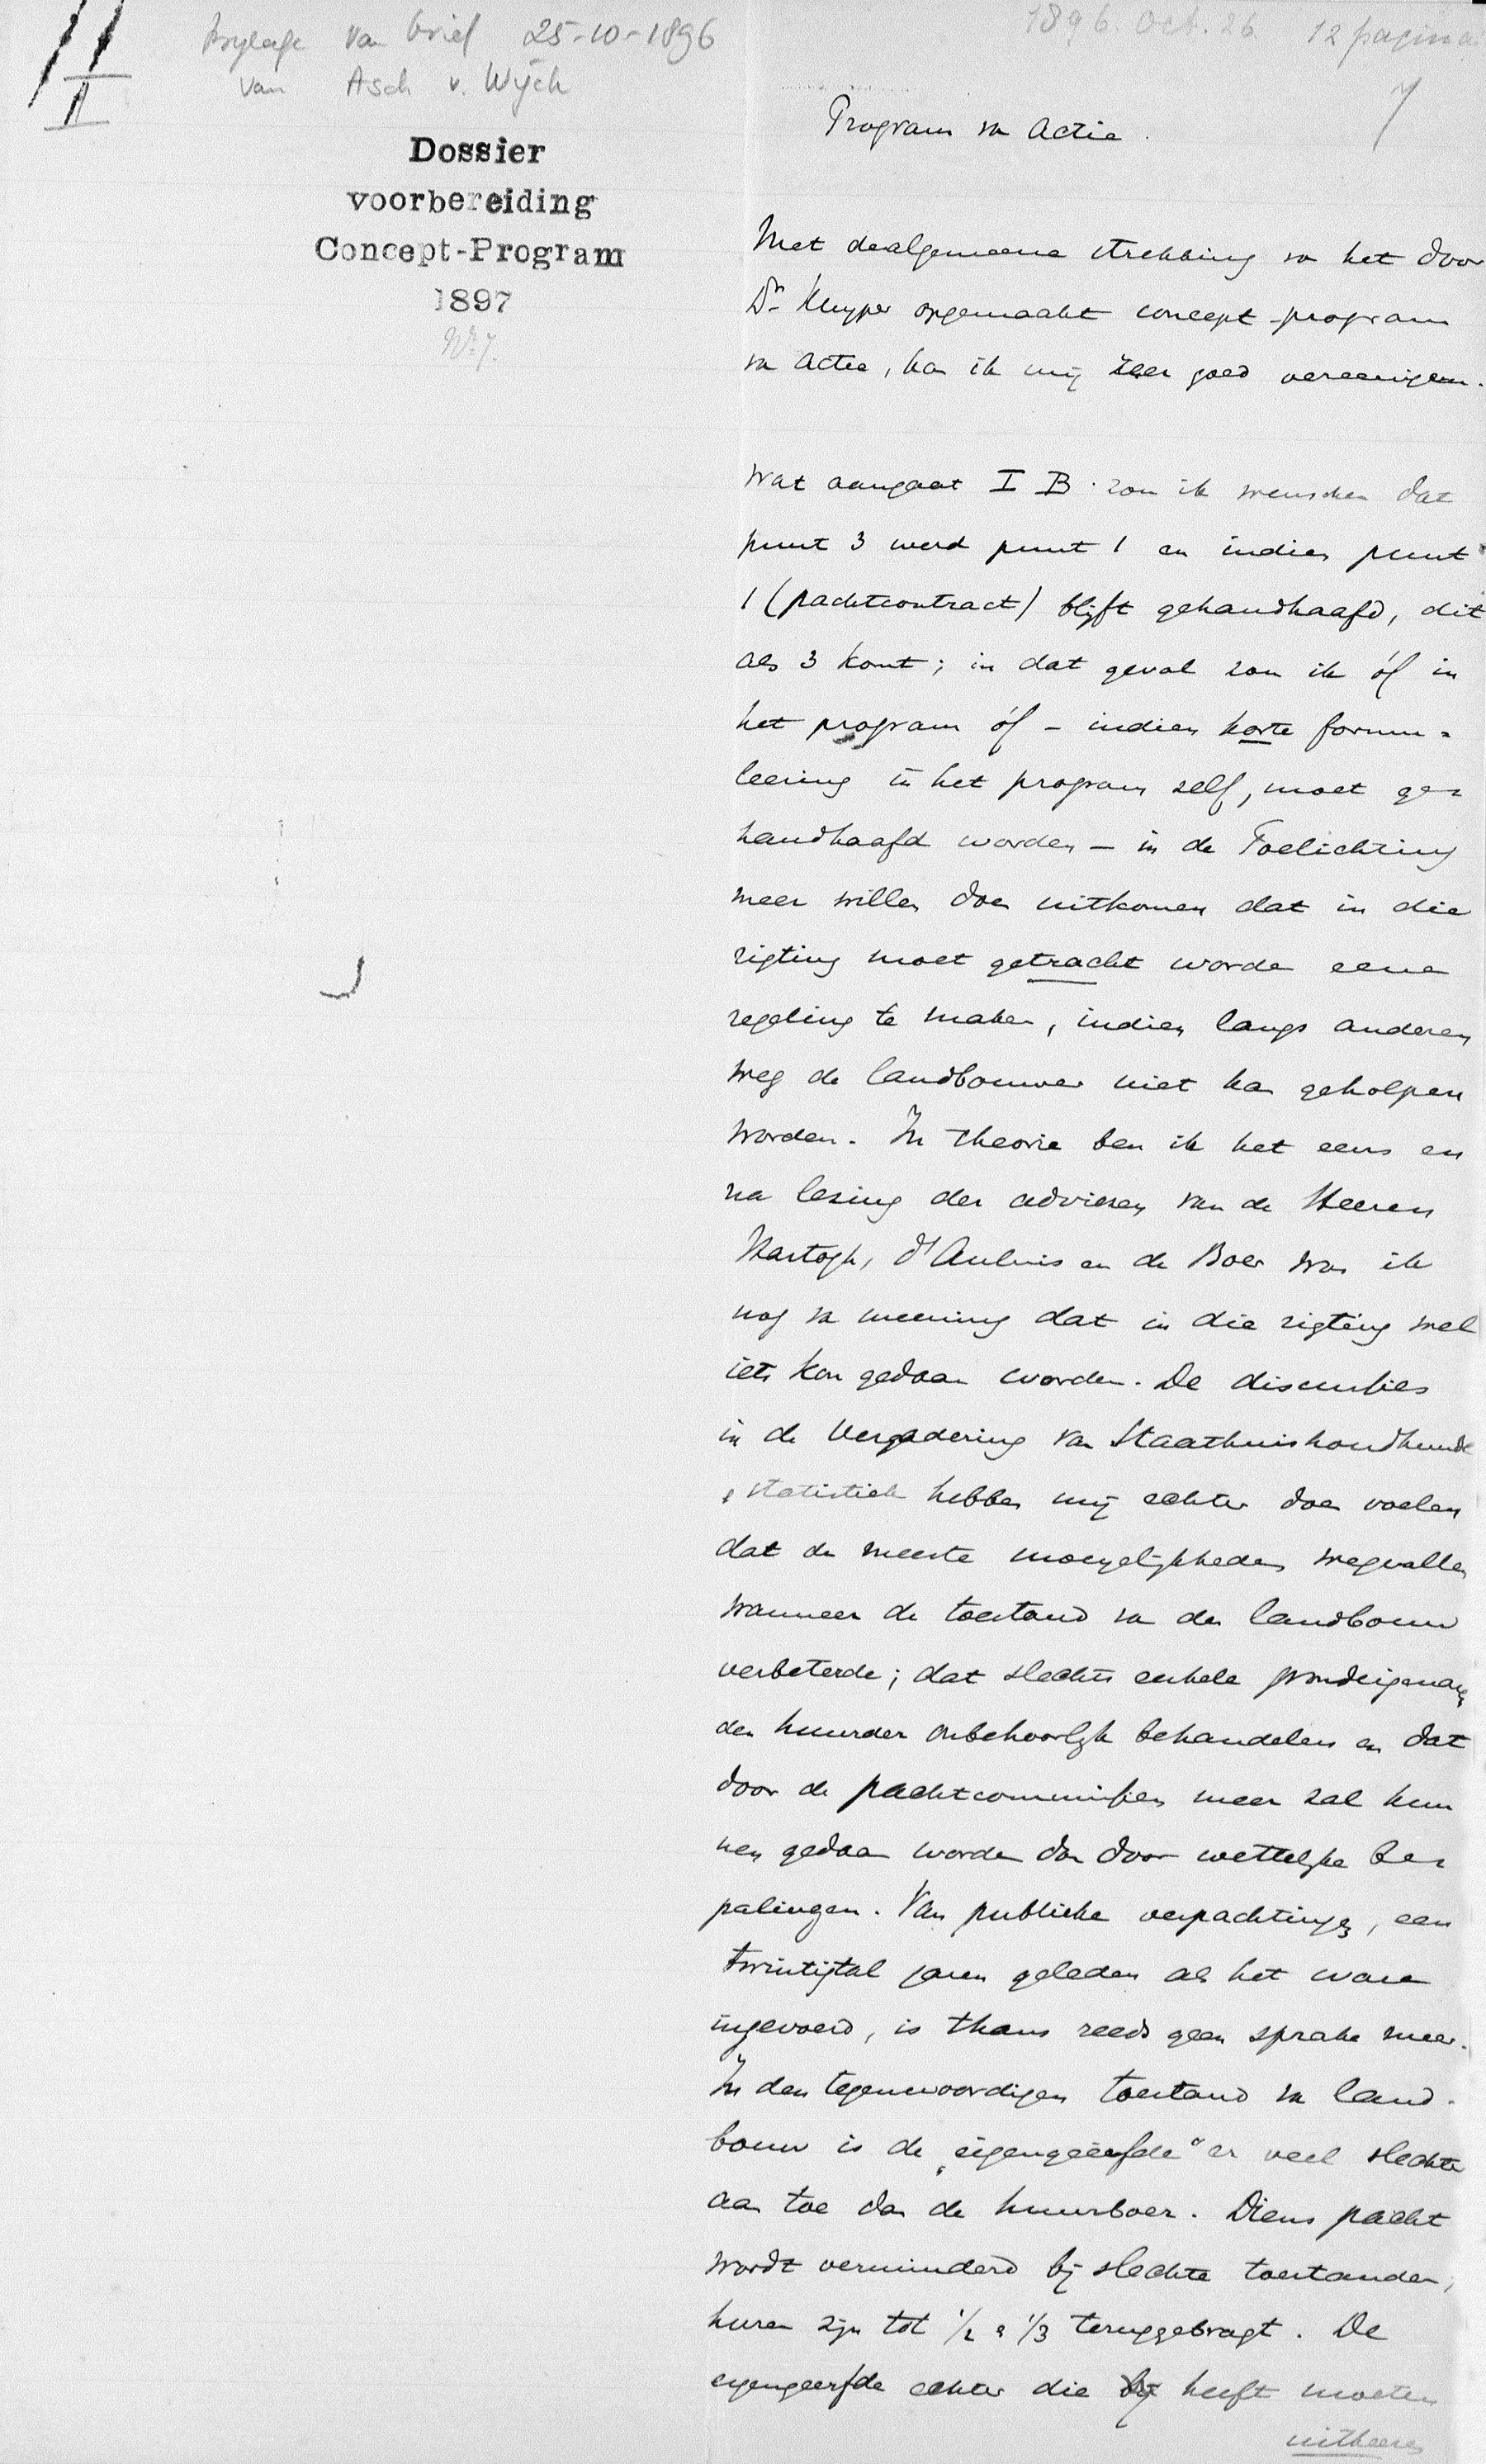 II
I
bylage van brief 25-10-1896
van Asch v. Wijck
1896. Oct. 26. 12 pagina's
7
Dossier
voorbereiding
Concept-Program
1897
No. 7.
Program van Actie.
Met de algemeene strekking van het door
Dr Kuyper opgemaakt concept-program
van actie, kan ik mij zeer goed vereenigen.
Wat aangaat I B. zou ik wenschen dat
punt 3 werd punt 1 en indien punt
1 (pachtcontract) blijft gehandhaafd, dit
als 3 komt; in dat geval zou ik óf in
het program óf - indien korte formu=
leering in het program zelf, moet ge=
handhaafd worden - in de Toelichting
meer willen doen uitkomen dat in die
rigting moet getracht worden eene
regeling te maken, indien langs anderen
weg de landbouwer niet kan geholpen
worden. In theorie ben ik het eens en
na lezing der adviezen van de Heeren
Hartogh, d'Aulnis en de Boer was ik
nog van meening dat in die rigting wel
iets kon gedaan worden. De discussies
in de Vergadering van Staathuishoudkunde
& statistiek hebben mij echter doen voelen
dat de meeste moeyelijkheden wegvallen
wanneer de toestand van den landbouw
verbeterde; dat slechts enkele grondeigenaren
den huurder onbehoorlijk behandelen en dat
door de pachtcommissien meer zal kun
nen gedaan worden dan door wettelijke be=
palingen. Van publieke verpachtingen, een
twintigtal jaren geleden als het ware
ingevoerd, is thans reeds geen sprake meer.
In den tegenwoordigen toestand van land-
bouw is de „eigengeërfde" er veel slechter
aan toe dan de huurboer. Diens pacht
wordt verminderd bij slechte toestanden,
huren zijn tot 1/2 à 1/3 teruggebragt. De
eigengeerfde echter die heeft moeten
uitkeeren